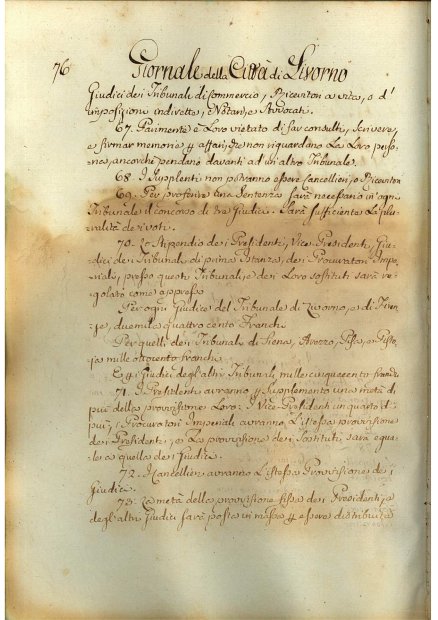 76 Giornale della Città di Livorno
Giudici dei Tribunali di Commercio, Ricevitori a vita, o d'
imposizione indirette, Notari, e Avvocati.
67. Parimente è Loro vietato di far consulti, Scrivere,
e firmar memorie p affari, che non riguardano La Loro perso-
na, ancorchè pendano davanti ad un'altro Tribunale.
68. I Supplenti non potranno essere Cancellieri, o Ricevitori
69. Per proferire una Sentenza sarà necessario in ogni
Tribunale il concorso di tre Giudici. Sarà sufficiente La plu-
ralità dei voti.
70. Lo Stipendio dei Presidenti, Vice-Presidenti, Giu-
dici dei Tribunali di prima Istanza, dei Procuratori Impe-
riali, presso questi Tribunali, e dei Loro sostituti sarà re-
golato come appresso
Per ogni Giudice del Tribunale di Livorno, e di Firen-
ze, due mila quattro cento Franchi
Per quelli dei Tribunali di Siena, Arezzo, Pisa, e Pisto-
ja mille ottocento franchi
E gi Giudici degli altri Tribunali mille cinquecento franchi
71. I Presidenti avranno p Supplemento una metà di
più della provvisione Loro: I Vice-Presidenti un quarto di
più; I Procuratori Imperiali avranno L'istessa provvisione
dei Presidenti; e La provvisione dei Sostituti sarà egua-
le a quella dei Giudici.
72. I Cancellieri avranno L'istessa Provvisione dei
Giudici.
73. La metà della provvisione fissa dei Presidenti, e
degli altri Giudici sarà posta in massa p essere distribuita